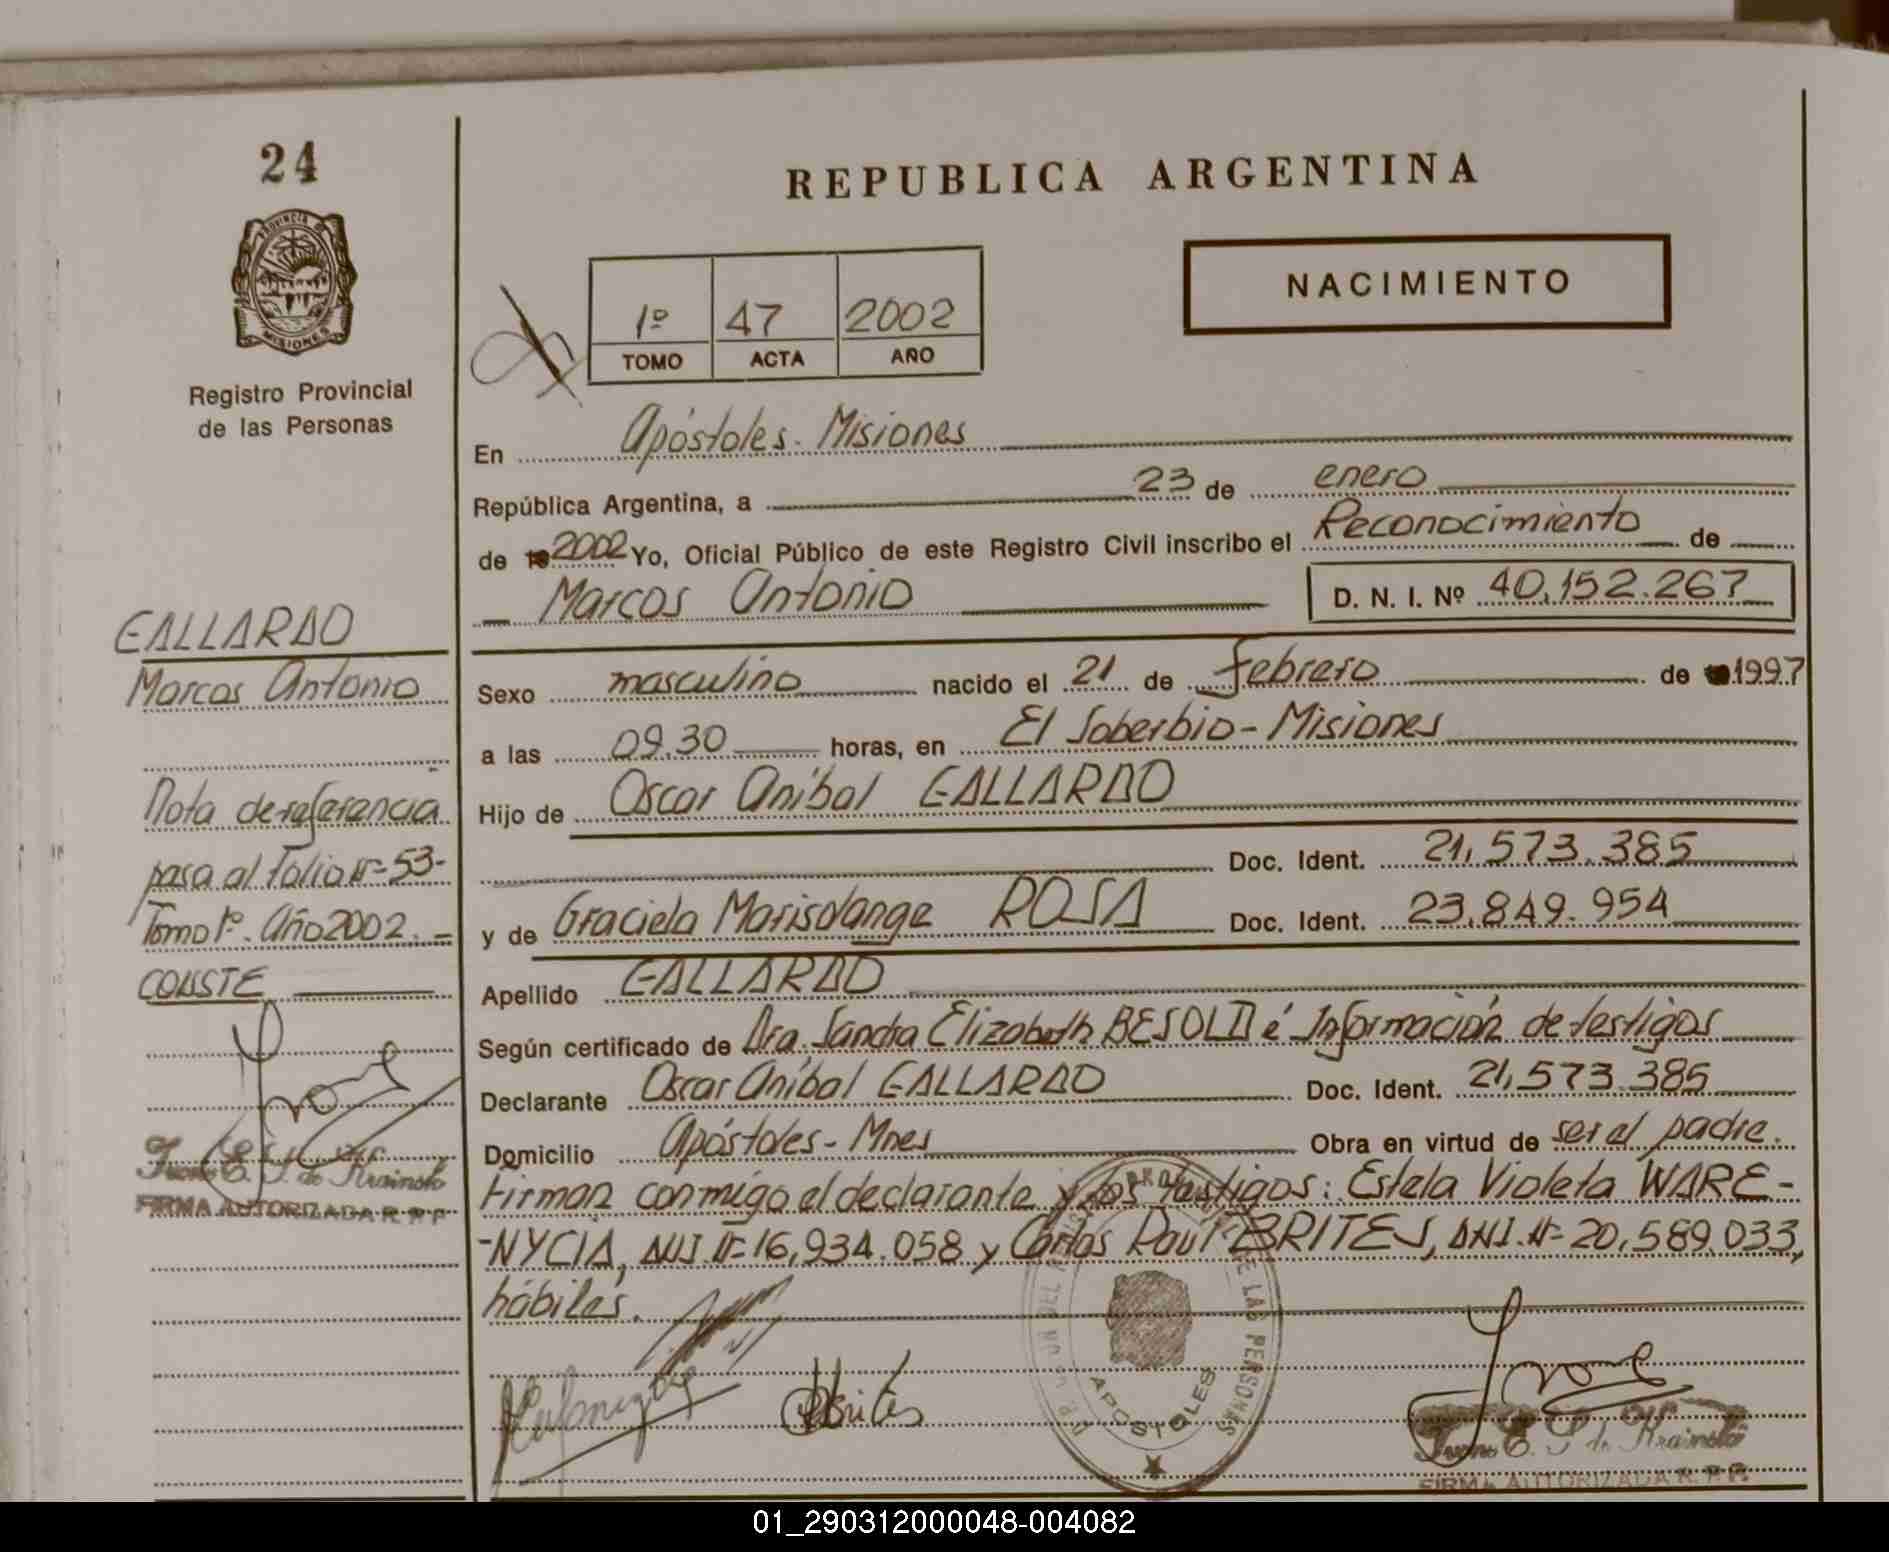 24
PROVINCIA DE
MISIONES
Registro Provincial
de las Personas
REPUBLICA ARGENTINA
NACIMIENTO
1º 47 2002
TOMO ACTA AÑO
En Apóstoles. Misiones
República Argentina, a 23 de enero
de 19 2002 Yo, Oficial Público de este Registro Civil inscribo el Reconocimiento de
Marcos Antonio D. N. I. Nº 40.152.267
Sexo masculino nacido el 21 de febrero de 1997
a las 09.30 horas, en El Soberbio - Misiones
Hijo de Oscar Aníbal GALLARDO
Doc. Ident. 21.573.385
y de Graciela Marisolange ROSA Doc. Ident. 23.849.954
Apellido GALLARDO
Según certificado de Dra. Sandra Elizabeth BESOLD é Información de testigos
Declarante Oscar Aníbal GALLARDO Doc. Ident. 21.573.385
Domicilio Apóstoles - Mnes Obra en virtud de ser el padre.
Firman conmigo el declarante y los testigos: Estela Violeta WARE-
-NYCIA, DNI. Nº 16.934.058 y Carlos Raul BRITES, DNI. Nº 20.589.033,
hábiles.
GALLARDO
Marcos Antonio
Nota de referencia
pasa al Folio Nº 53-
Tomo 1º. Año 2002. -
CONSTE
FIRMA AUTORIZADA R. P. P.
Brites
DE LAS PERSONAS
APOSTOLES
FIRMA AUTORIZADA R. P. P.
01_290312000048-004082